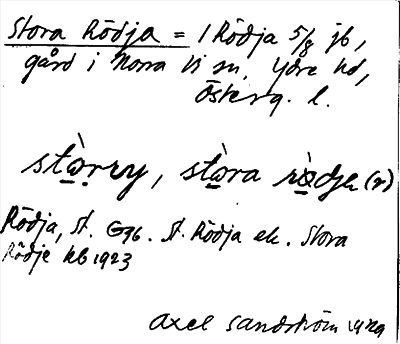 Stora Rödja = 1 Rödja 5/8 jb,
gård i Norra Vi sn, Ydre hd,
Österg. l.
stòrry, stòra ròdjẹ (2)
Rödja, St. G96. St. Rödja ek. Stora
Rödje kb 1923
Axel Sandström 1929